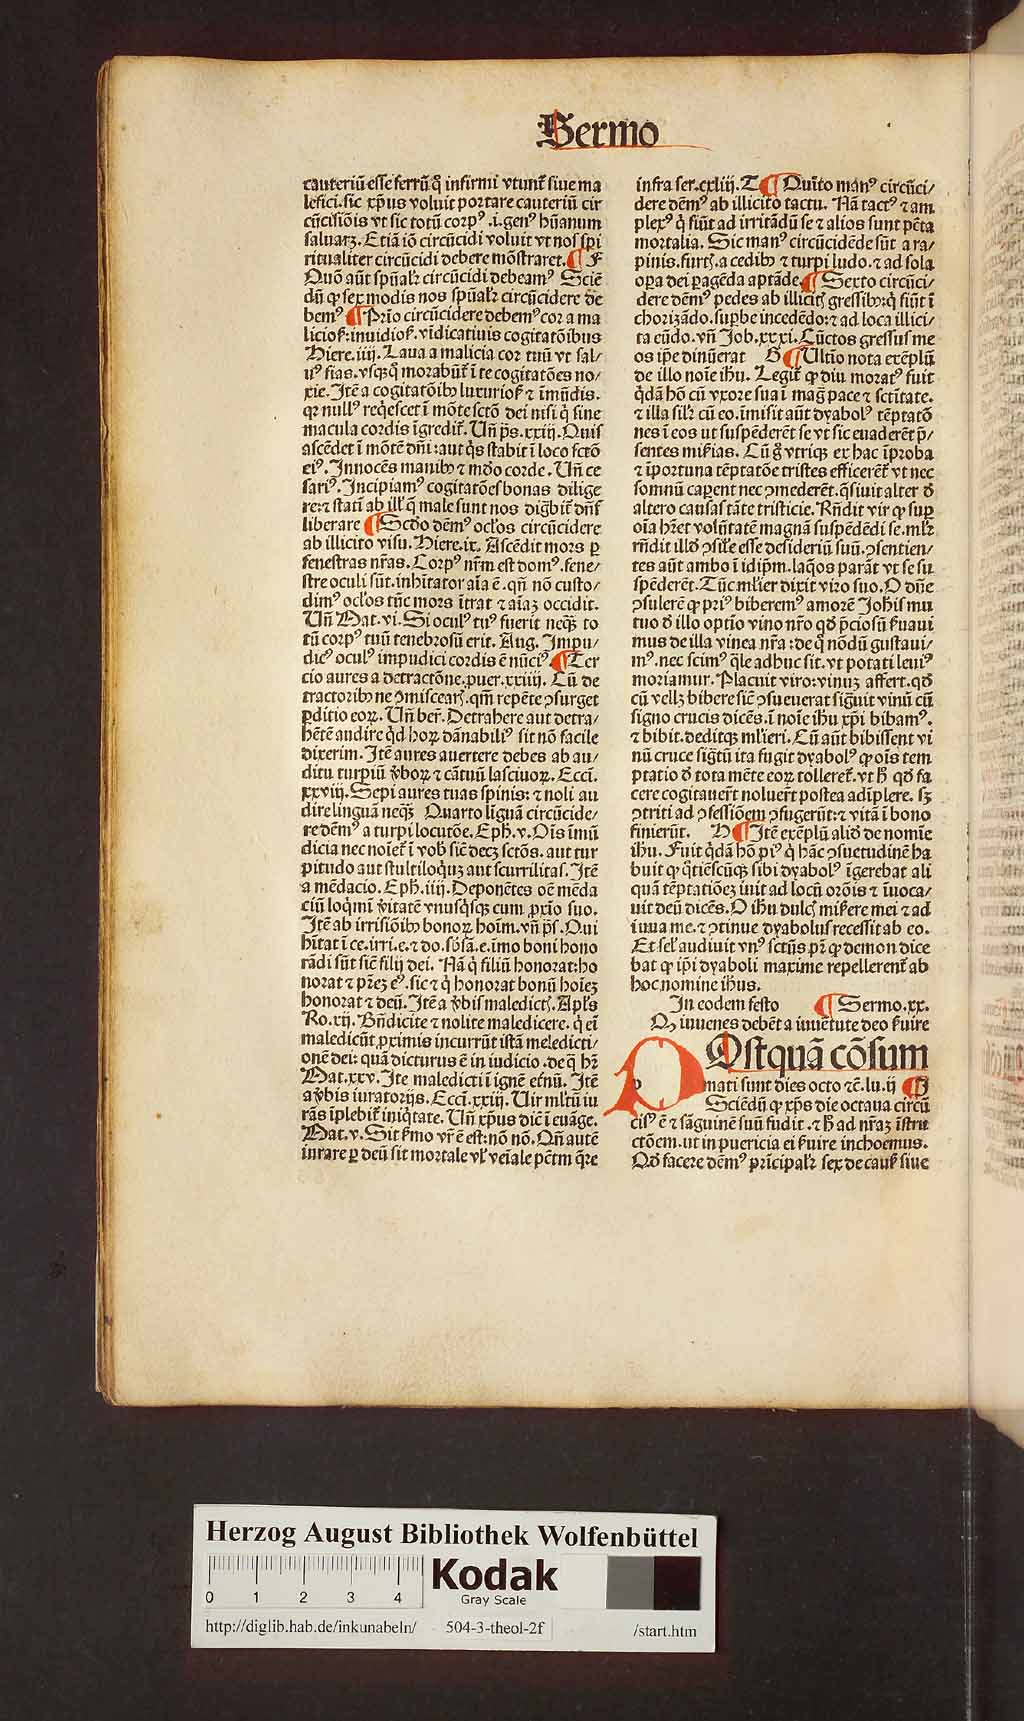 Sermo
cauteriū esse ferrū q̄ infirmi vtunt᷑ siue ma
lefici. sic xp̄us voluit portare cauteriū cir
cūcisiōis vt sic totū corpꝰ .i. genꝰ hūanum
saluaꝫ. Etiā iō circūcidi voluit vt nos spi
ritualiter circūcidi debere mōstraret. ¶ F
Quō aūt spūalr̄ circūcidi debeamꝰ Sciē
dū ꝙ sex modis nos spūalr̄ circūcidere de
bemꝰ ¶ Prīo circūcidere debemꝰ cor a ma
licioẜ: inuidioẜ. vīdicatiuis cogitatōibus
Hiere. iiij. Laua a malicia cor tuū vt sal-
uꝰ fias. vsq̄q̄ morabūt᷑ ī te cogitatōes no/
xie. Itē a cogitatōibꝫ luxurioẜ ⁊ īmūdis.
qꝛ nullꝰ reqescet ī mōte sctō dei nisi q̇ sine
macula cordis īgredit᷑. Un̄ p̄s. xxiij. Quis
ascēdet ī mōtē dn̄i: aut q̇s stabit ī loco sctō
eiꝰ. Innocēs manibꝫ ⁊ mūdo corde. Un̄ ce
sariꝰ. Incipiamꝰ cogitatōes bonas dilige
re: ⁊ statī ab illꝭ q̄ male sunt nos digbit᷑ dn̄s
liberare ¶ Scdo dēmꝰ oclꝭos circūcidere
ab illicito visu. Hiere. ix. Ascēdit mors ꝑ
fenestras nr̄as. Corpꝰ nr̄m est domꝰ. fene/
stre oculi sūt. inhītator aīa ē. qn̄ nō custo/
dimꝰ oclꝭos tūc mors ītrat ⁊ aīaꝫ occidit.
Un̄ Mat. vi. Si oculꝰ tuꝰ fuerit neq̄ꝫ to
tū corpꝰ tuū tenebrosū erit. Aug. Impu/
dicꝰ oculꝰ impudici cordis ē nūciꝰ. ¶ Ter
cio aures a detractōne. ꝓuer. xxiiij. Cū de
tractoribꝫ ne ꝯmiscearꝭ. qm̄ repēte ꝯsurget
ꝑditio eoꝝ. Un̄ ber. Detrahere aut detra/
hētē audire q̇d hoꝝ dānabiliꝰ sit nō facile
dixerim. Itē aures auertere debes ab au/
ditu turpiū v̄boꝝ ⁊ cātuū lasciuoꝝ. Ecci.
xxviij. Sepi aures tuas spinis: ⁊ noli au
dire linguā neq̄ꝫ Quarto līguā circūcide/
re dēmꝰ a turpi locutōe. Eph. v. Oīs īmū
dicia nec noīet᷑ ī vob sic decꝫ sctōs. aut tur
pitudo aut stultiloquiū aut scurrilitas. Itē
a mēdacio. Eph. iiij. Deponētes oē mēda
ciū loqm̄ī v̄itatē vnusq̇sqꝫ cum ꝓxīo suo.
Itē ab irrisiōibꝫ bonoꝝ hoīm. vn̄ p̄s. Qui
hītat ī ce. irri. e. ⁊ do. sb̄sā. e. īmo boni hono
rādi sūt sic filij dei. Nā q̇ filiū honorat: ho
norat ⁊ pr̄eꝫ eꝰ. sic ⁊ q̇ honorat bonū hoīeꝫ
honorat ⁊ deū. Itē a v̄bis maledictꝭ. Apls
Ro. xij. Bn̄dicite ⁊ nolite maledicere. q̇ ei
maledicūt ꝓximis incurrūt istā meledicti/
onē dei: quā dicturus ē in iudicio. de q̄ hr̄
Mat. xxv. Ite maledicti ī ignē et̄nū. Itē
a v̄bis iuratorijs. Ecci. xxiij. Uir mltū iu
rās īplebit᷑ iniq̇tate. Un̄ xp̄us dic̄ ī euāge.
Mat. v. Sit ẜmo vr̄ ē est: nō nō. Qn̄ autē
iurare ꝑ deū sit mortale vl̓ veīale pctm̄ q̄re
infra ser. cxliij. T ¶ Quīto manꝰ circūci/
dere dēmꝰ ab illicito tactu. Nā tactꝰ ⁊ am
plexꝰ q̇ fiūt ad irritādū se ⁊ alios sunt pctā
mortalia. Sic manꝰ circūcidēde sūt a ra/
pinis. furtꝭ. a cedibꝫ ⁊ turpi ludo. ⁊ ad sola
oꝑa dei ꝑagēda aptāde ¶ Sexto circūci/
dere dēmꝰ pedes ab illicitꝭ gressibꝫ: q̇ fiūt ī
chorizādo. suꝑbe incedēdo: ⁊ ad loca illici/
ta eūdo. vn̄ Job. xxxi. Cūctos gressus me
os ip̄e dinūerat G ¶ Ultīo nota exēplū
de illo noīe ihu. Legit᷑ ꝙ diu moratꝰ fuit
q̇dā hō cū vxore sua ī mag pace ⁊ sctītate.
⁊ illa silr̄ cū eo. īmisit aūt dyabolꝰ tēptatō
nes ī eos ut suspēderēt se vt sic euaderēt p̄/
sentes miẜias. Cū g̊ vtriqꝫ ex hac īproba
⁊ īportuna tēptatōe tristes efficerēt᷑ vt nec
somnū caꝑent nec ꝯmederēt. q̄siuit alter ď
altero causas tāte tristicie. Rn̄dit vir ꝙ suꝑ
oīa hr̄et volūtatē magnā suspēdēdi se. mlr̄
rn̄dit illō ꝯsile esse desideriū suū. ꝯsentien/
tes aūt ambo ī idip̄m. laq̄os parāt vt se su
spēderēt. Tūc ml̓ier dixit viro suo. O dn̄e
ꝯsulerē ꝙ priꝰ biberemꝰ amorē Johis mu
tuo ď illo optīo vino nr̄o qď p̄ciosū ẜuaui
mus de illa vinea nr̄a: de q̄ nōdū gustaui/
mꝰ. nec scimꝰ q̄le adhuc sit. vt potati leuiꝰ
moriamur. Placuit viro: vinuꝫ affert. qď
cū vellꝫ bibere sic ꝯsueuerat signuit vinū cū
signo crucis dicēs. ī noīe ihu xp̄i bibamꝰ.
⁊ bibit. deditqꝫ ml̓ieri. Cū aūt bibissent vi
nū cruce sigtū ita fugit dyabolꝰ ꝙ oīs tem
ptatio ď tota mēte eoꝝ tolleret᷑. vt ħ qď fa
cere cogitauer̄t noluer̄t postea adīplere. sꝫ
ꝯtriti ad ꝯfessiōem ꝯfugerūt: ⁊ vitā ī bono
finierūt. H ¶ Itē exēplū aliď de nomīe
ihu. Fuit q̇dā hō piꝰ q̇ hāc ꝯsuetudinē ha
buit ꝙ q̇tiēscūqꝫ sibi dyabolꝰ īgerebat ali
quā tēptatiōeꝫ iuit ad locū orōis ⁊ īuoca/
uit deū dicēs. O ihu dulcꝭ miẜere mei ⁊ ad
iuua me. ⁊ ꝯtinue dyabolus recessit ab eo.
Et sel̓ audiuit vnꝰ sctūs pr̄ ꝙ demon dice
bat ꝙ ip̄i dyaboli maxime repellerent᷑ ab
hoc nomine ihus.
In eodem festo ¶ Sermo. xx.
Qꝫ iuuenes debēt a iuuētute deo ẜuire
POstquā cōsum
mati sunt dies octo ⁊c̄. lu. ij ¶
Sciēdū ꝙ xp̄s die octaua circū
cisꝰ ē ⁊ sāguinē suū fudit. ⁊ ħ ad nr̄aꝫ īstru
ctōem. ut in puericia ei ẜuire inchoemus.
Qď facere dēmꝰ prīcipalr̄ sex de causẜ siue
Herzog August Bibliothek Wolfenbüttel
0 1 2 3 4
Kodak
Gray Scale
http://diglib.hab.de/inkunabeln/ 504-3-theol-2f /start.htm